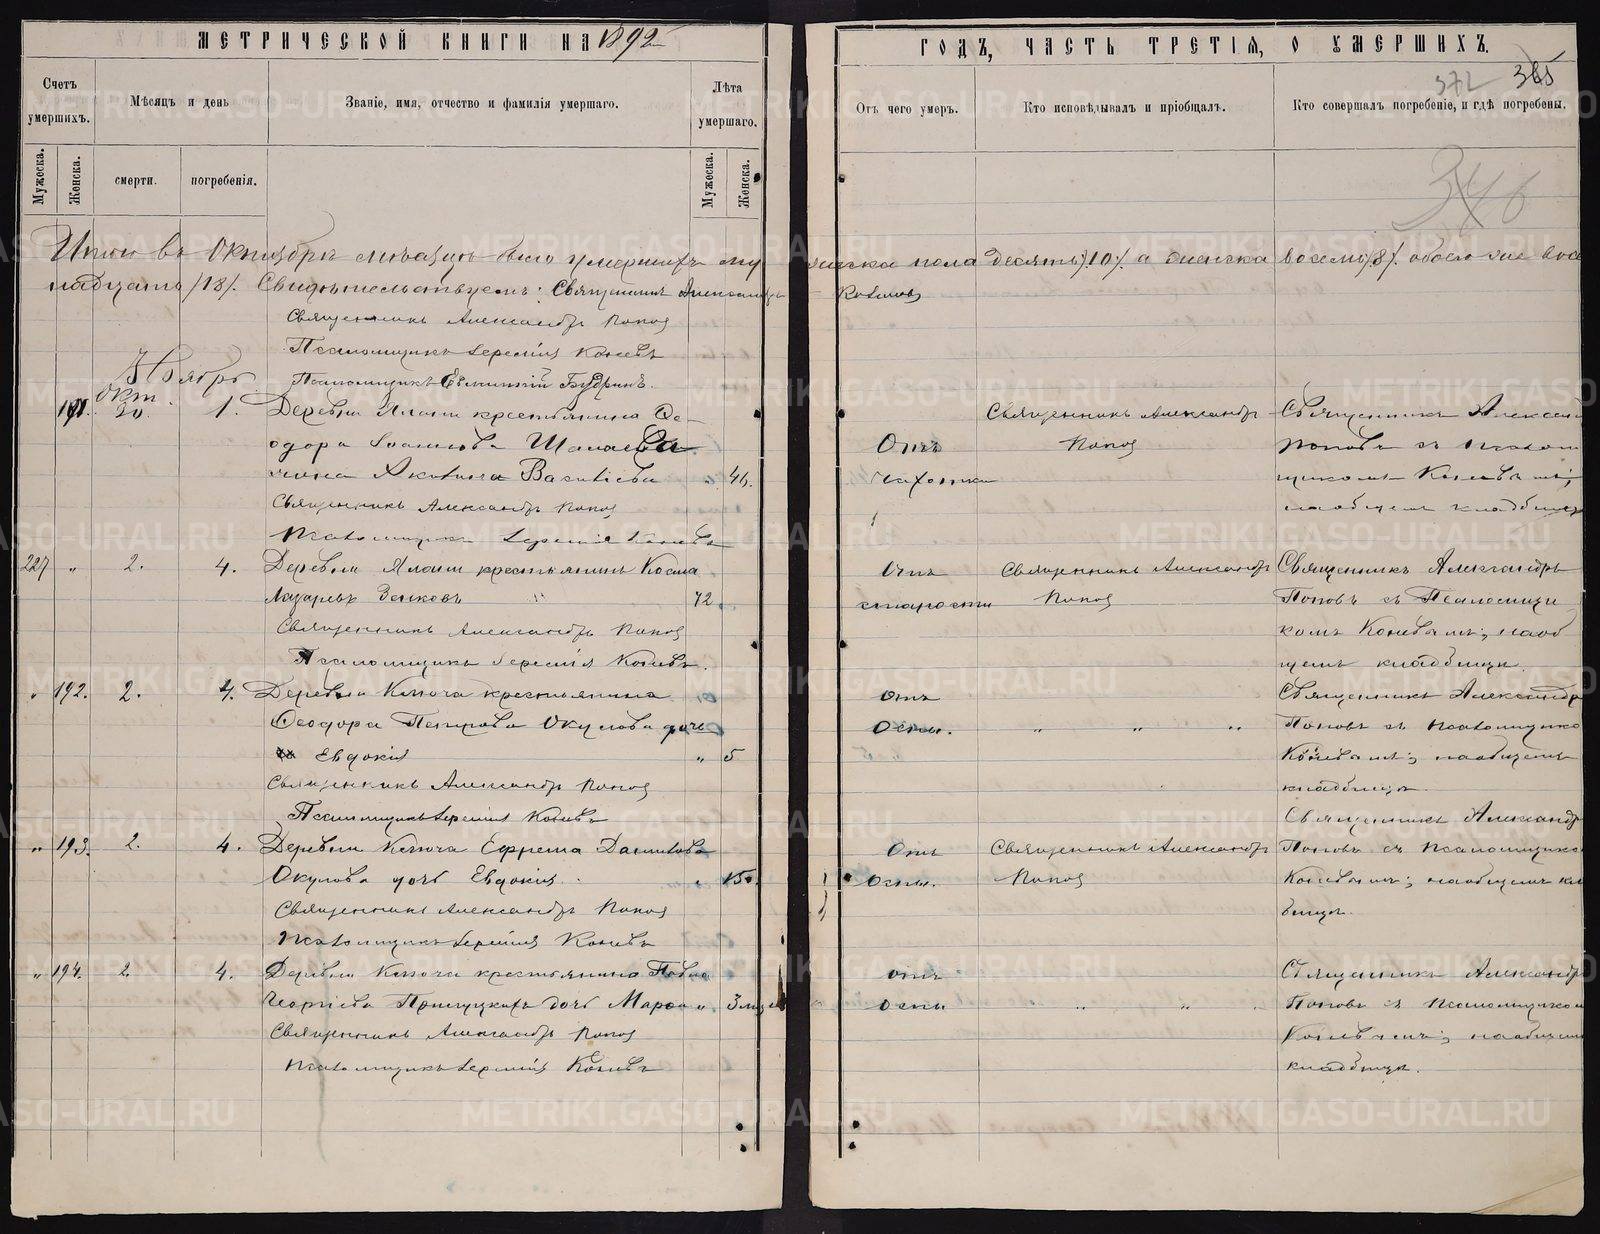 МЕТРИЧЕСКОЙ КНИГИ НА 1892
ГОДЪ, ЧАСТЬ ТРЕТІЯ, О УМЕРШИХЪ.
372 385
Счетъ умершихъ.
Мѣсяцъ и день
Званіе, имя, отчество и фамилія умершаго.
Лѣта умершаго.
Отъ чего умеръ.
Кто исповѣдывалъ и пріобщалъ.
Кто совершалъ погребеніе, и гдѣ погребены.
Мужеска.
Женска.
смерти.
погребенія.
Мужеска.
Женска.
346
Итого въ Октябрѣ мѣсяцѣ было умершихъ му
жеска пола десять /10/. а женска восемь /8/. обоего
надцать /18/. Свидѣтельствуемъ: Священникъ Александръ
Священникъ Александръ Поповъ
Псаломщикъ Іеремія Коневъ
Псаломщикъ
Ноябрь
Окт.
191. 30. 1. Деревни крестьянина Ѳе-
одора
жена Васильева 46.
Священникъ Александръ Поповъ
Псаломщикъ Іеремія Коневъ
Отъ
чахотки
Священникъ Александръ
Поповъ
Священникъ Алексан
Поповъ съ псалом
щикомъ Коневымъ;
на общемъ кладбищѣ
227 „ 2. 4. Деревни крестьянинъ Косма
72.
Священникъ Александръ Поповъ
Псаломщикъ Іеремія Коневъ.
Отъ
старости
Священникъ Александръ
Поповъ
Священникъ Александръ
Поповъ съ Псаломщи
комъ Коневымъ; на об
щемъ кладбищѣ.
„ 192. 2. 4. Деревни Ключа крестьянина
Ѳеодора Петрова Окулова дочь
Евдокія „ 5
Священникъ Александръ Поповъ
Псаломщикъ Іеремія Коневъ
отъ
Оспы. „ „ „
Священникъ Александръ
Поповъ съ псаломщико
Коневымъ; на общемъ
кладбищѣ.
„ 193. 2. 4. Деревни Ключа Ефрема
Окулова дочь Евдокія. 15.
Священникъ Александръ Поповъ
Псаломщикъ Іеремія Коневъ
Отъ
Оспы.
Священникъ Александръ
Поповъ
Священникъ Александр
Поповъ съ псаломщико
Коневымъ; на общемъ кла
бищѣ.
„ 194. 2. 4. Деревни Ключа крестьянина
Георгіева дочь „ 3
Священникъ Александръ Поповъ
псаломщикъ Іеремія Коневъ
отъ
оспы „ „
Священникъ Александръ
Поповъ съ псаломщиком
Коневымъ; на общемъ
кладбищѣ.
METRIKI.GASO-URAL.RU